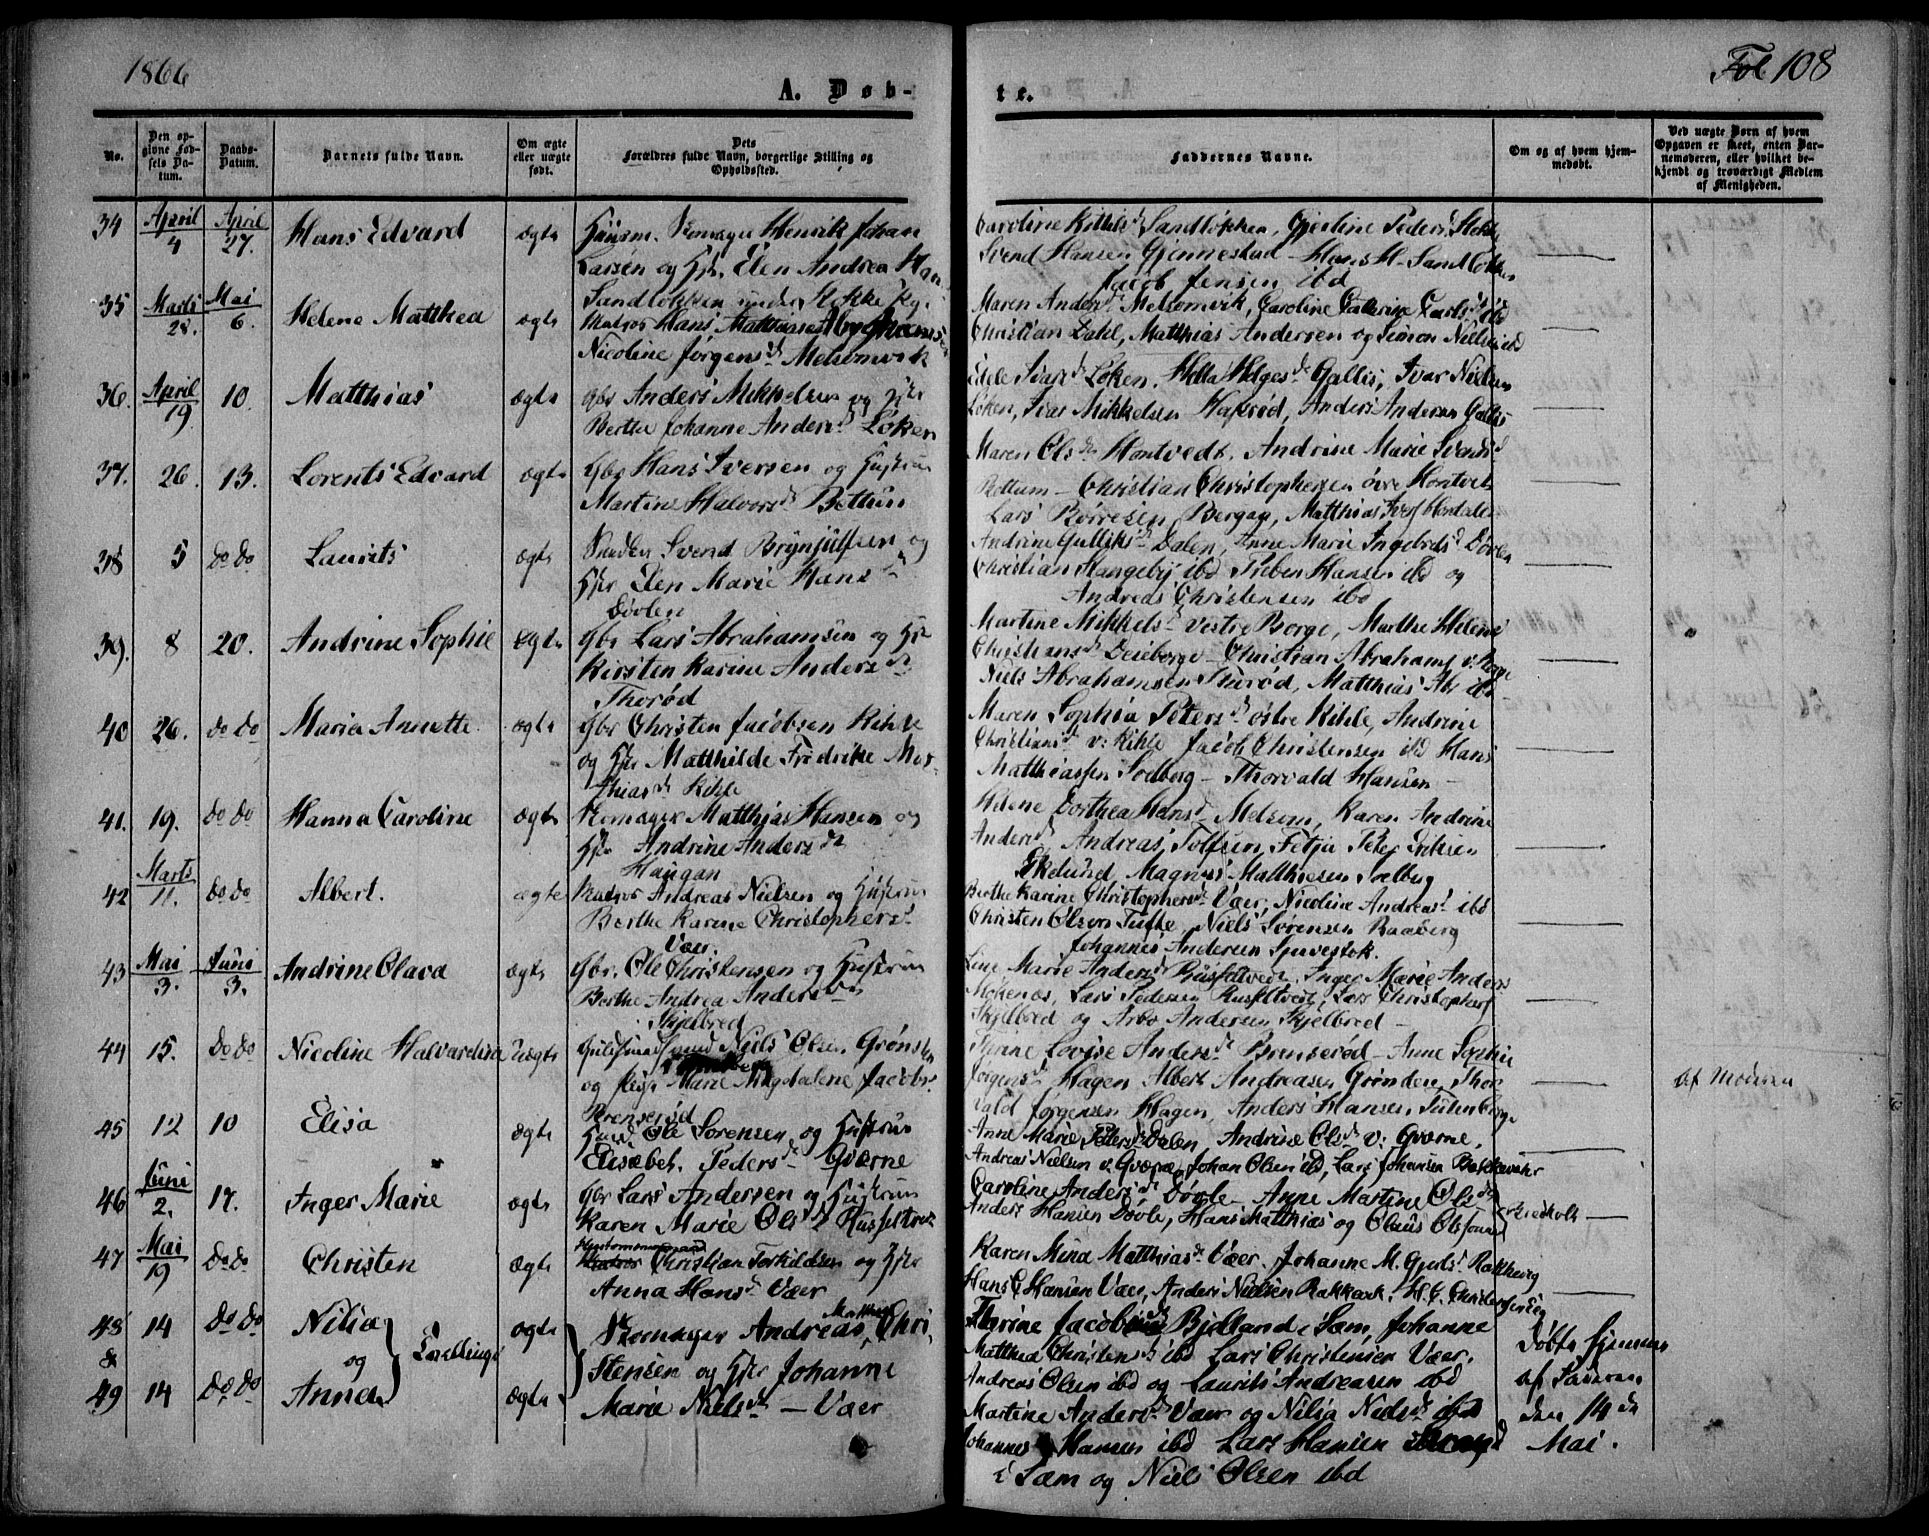 1866
Fol 108
A. Døb-
te.
No.
Den op-
givne Fød-
sels Da-
tum.
Daabs-
Datum.
Barnets fulde Navn.
Om ægte
eller uægte
født.
Dets
Forældres fulde Navn, borgerlige Stilling og
Opholdssted.
Faddernes Navne.
Om og af hvem hjem-
medøbt.
Ved uægte Børn af hvem
Opgaven er skeet, enten Bar-
nemoderen, eller hvilket be-
kjendt og troværdigt Medlem
af Menigheden.
34 April 4 April 27. Hans Edvard ægte
Huusm. Skomager Henrik Johan
Larsen og Hst. Elen Andrea Han
Sandløkken under Stokke
Caroline Kittilsd Sandløkken, Gjertine Pedersd Stokke
Svend Hansen Gjennestad - Hans H. Sandløkken
Jacob Jensen ibd
35 Marts 28. Mai 6. Helene Matthea ægte
Matros Hans Matthiassen
Nicoline Jørgensd Melsomvik
Maren Andersd Melsomvik, Caroline Cathrine Carlsd ibd
Christian Dahl, Matthias Andersen og Simon Nielsen ibd
36. April 19 10. Matthias ægte
Gbr Anders Mikkelsen og Hstr
Berthe Johanne Andersd Løken
Edele Ivarsd Løken, Helga Helgesd Gallis, Ivar Nielsen
Løken, Ivar Mikkelsen Hafrød, Anders Andersen Gallis
37. 26. 13. Lorents Edvard ægte
Gbr Hans Iversen og Hustru
Martine Halvorsd Bettum
Maren Olsd Hontvedt, Andrine Marie Svendsd
Bettum - Christian Christophersen övre Hontvet
Lars Børresen Bergan, Matthias
38 5 do do Laurits ægte
Svend Brynjulfsen og
Hstr Elen Marie Hansd
Døvlen
Andrine Gulliksd Dalen, Anne Marie Ingebretsd Døvlen
Christian Hangeby ibd Preben Hansen ibd og
Andreas Christensen ibd
39. 8 20. Andrine Sophie ægte
Gbr Lars Abrahamsen og Hst
Kirsten Karine Andersd
Thorød
Martine Mikkelsd vestre Borge, Marthe Helene
Christiansd Borge - Christian Abrahams v. Borge
Niels Abrahamsen Thorød, Matthias Abr ibd
40 26. do do Maria Annette ægte
Gbr Christen Jacobsen Kihle
og Hstr Matthilde Fredrike Mat-
thiasd Kihle
Maren Sophia Petersd östre Kihle, Andrine
Christiansd v: Kihle Jacob Christensen ibd Hans
Matthiassen Solberg - Thorvald Hansen -
41. 19. do do Hanna Caroline ægte
Skomager Matthias Hansen og
Hstr Andrine Andersd
Haugan
Helene Dorthea Hansd Melsom, Karen Andrine
Andersd, Andreas Tolfsen, Peter Eriksen
Ekelund Magnus Matthiesen Solberg
42 Marts 11. do do Albert. ægte
Matros Andreas Nielsen og Hustru
Berthe Karine Christophersd
Vær.
Berthe Karine Christophersd Vær, Nicoline Andreasd ibd
Christen Olsen Tufte, Niels Sørensen Raaberg
Johannes Andersen
43 Mai 3. Juni 3. Andrine Olava ægte
Gbr. Ole Christensen og Hustru
Berthe Andrea Andersd
Skjelbred
Line Marie Andersd Russeltvedt, Inger Marie Anders
Mokenæs, Lars Pedersen Russeltvedt, Lars Christophers
Skjelbred og Arbo Andersen Skjelbred -
44 15. do do Nicoline Halvardina Uægte
Niels Olsen Grønsten
og Pige Marie Magdalene Jacobsd
Brenserød
Thrine Lovise Andersd Brenserød - Anne Sophie
Jørgensd Hagen Albert Andreasen Grønden, Thor
vald Jørgensen Hagen, Anders Hansen
af Moderen
45 12 10 Elisa ægte
Ole Sørensen og Hustru
Elisabet. Pedersd Gværne
Anne Marie Pedersd Dalen, Andrine Olsd v: Gværne,
Andreas Nielsen v. Gværne, Johan Olsen ibd, Lars Johansen
46 Juni 2. 17. Inger Marie ægte
Gbr Lars Andersen og Hustru
Karen Marie Olsd Russeltvedt
Caroline Andersd Døvle - Anne Martine Olsd
Anders Hansen Døvle, Hans Matthias og Olaus Olsønner
47 Mai 19 do do Christen ægte
Christian Torkildsen og Hstr
Anna Hansd Vær
Karen Mina Matthiasd Vær. Johanne M. Gjertsd Rakkevig
Hans C Hansen Vær, Anders Nielsen Rakkevik
48 14 do do Nilia ægte
&
og
Tvillinger
49 14 do do Anne ægte
Skomager Andreas Matthias Chri-
stensen og Hstr Johanne
Marie Nielsd - Vær
Thrine Jacobsd Bjelland i Sæm, Johanne
Matthea Christensd ibd Lars Christensen Vær.
Andreas Olsen ibd og Laurits Andreasen ibd
Martine Andersd Vær og Nilia Nielsd ibd
Johannes Hansen ibd Lars Hansen
i Sæm og Niels Olsen ibd
Døbte hjemme
af
den 14 de
Mai.